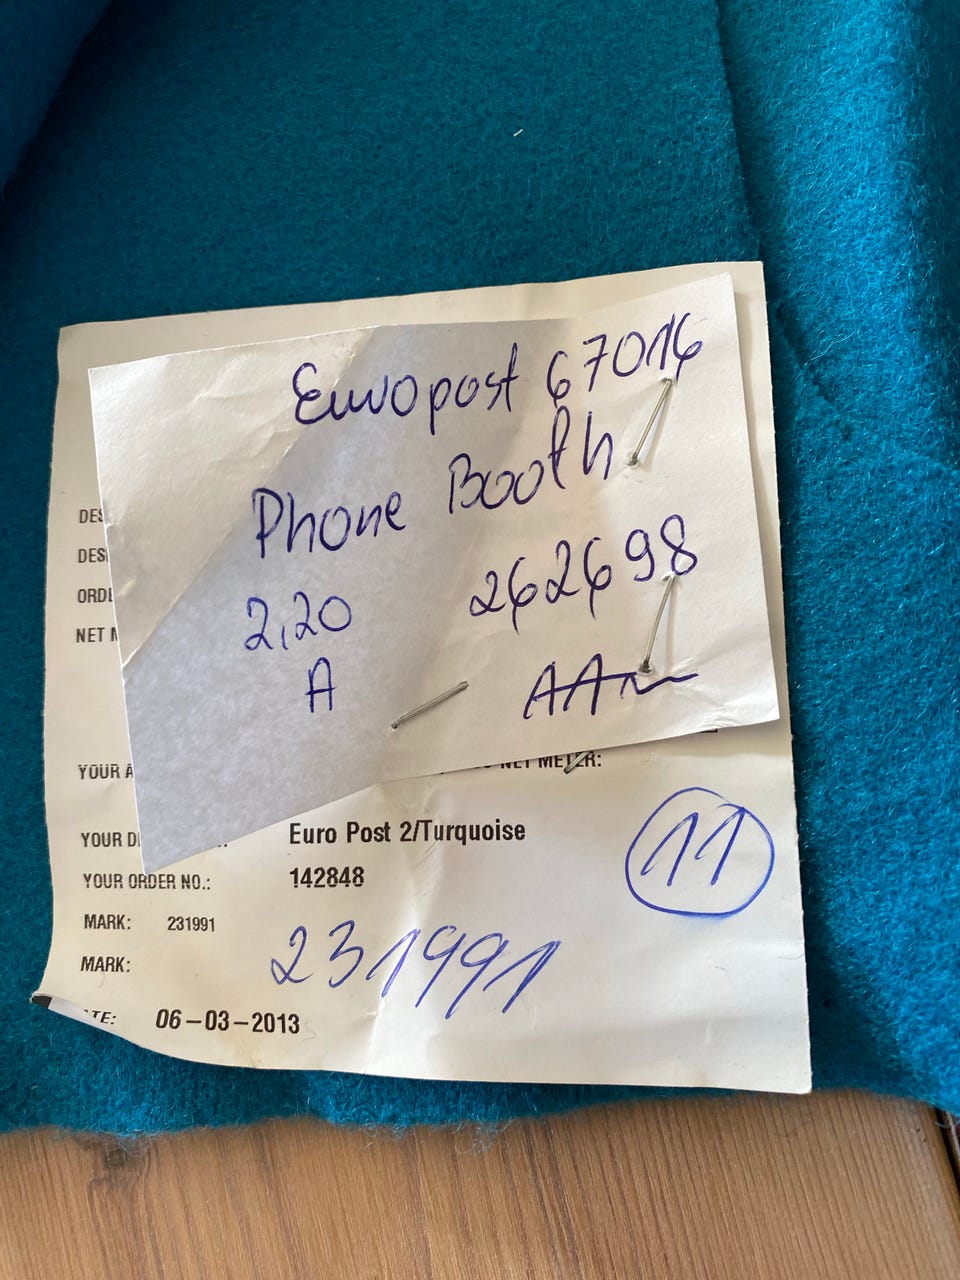 Europost 67016
Phone Booth
2,20 262698
A
DES
DES
ORDE
NET
YOUR A NET METER:
YOUR D
Euro Post 2/Turquoise
11
YOUR ORDER NO.: 142848
MARK: 231991
231991
MARK:
TE: 06-03-2013